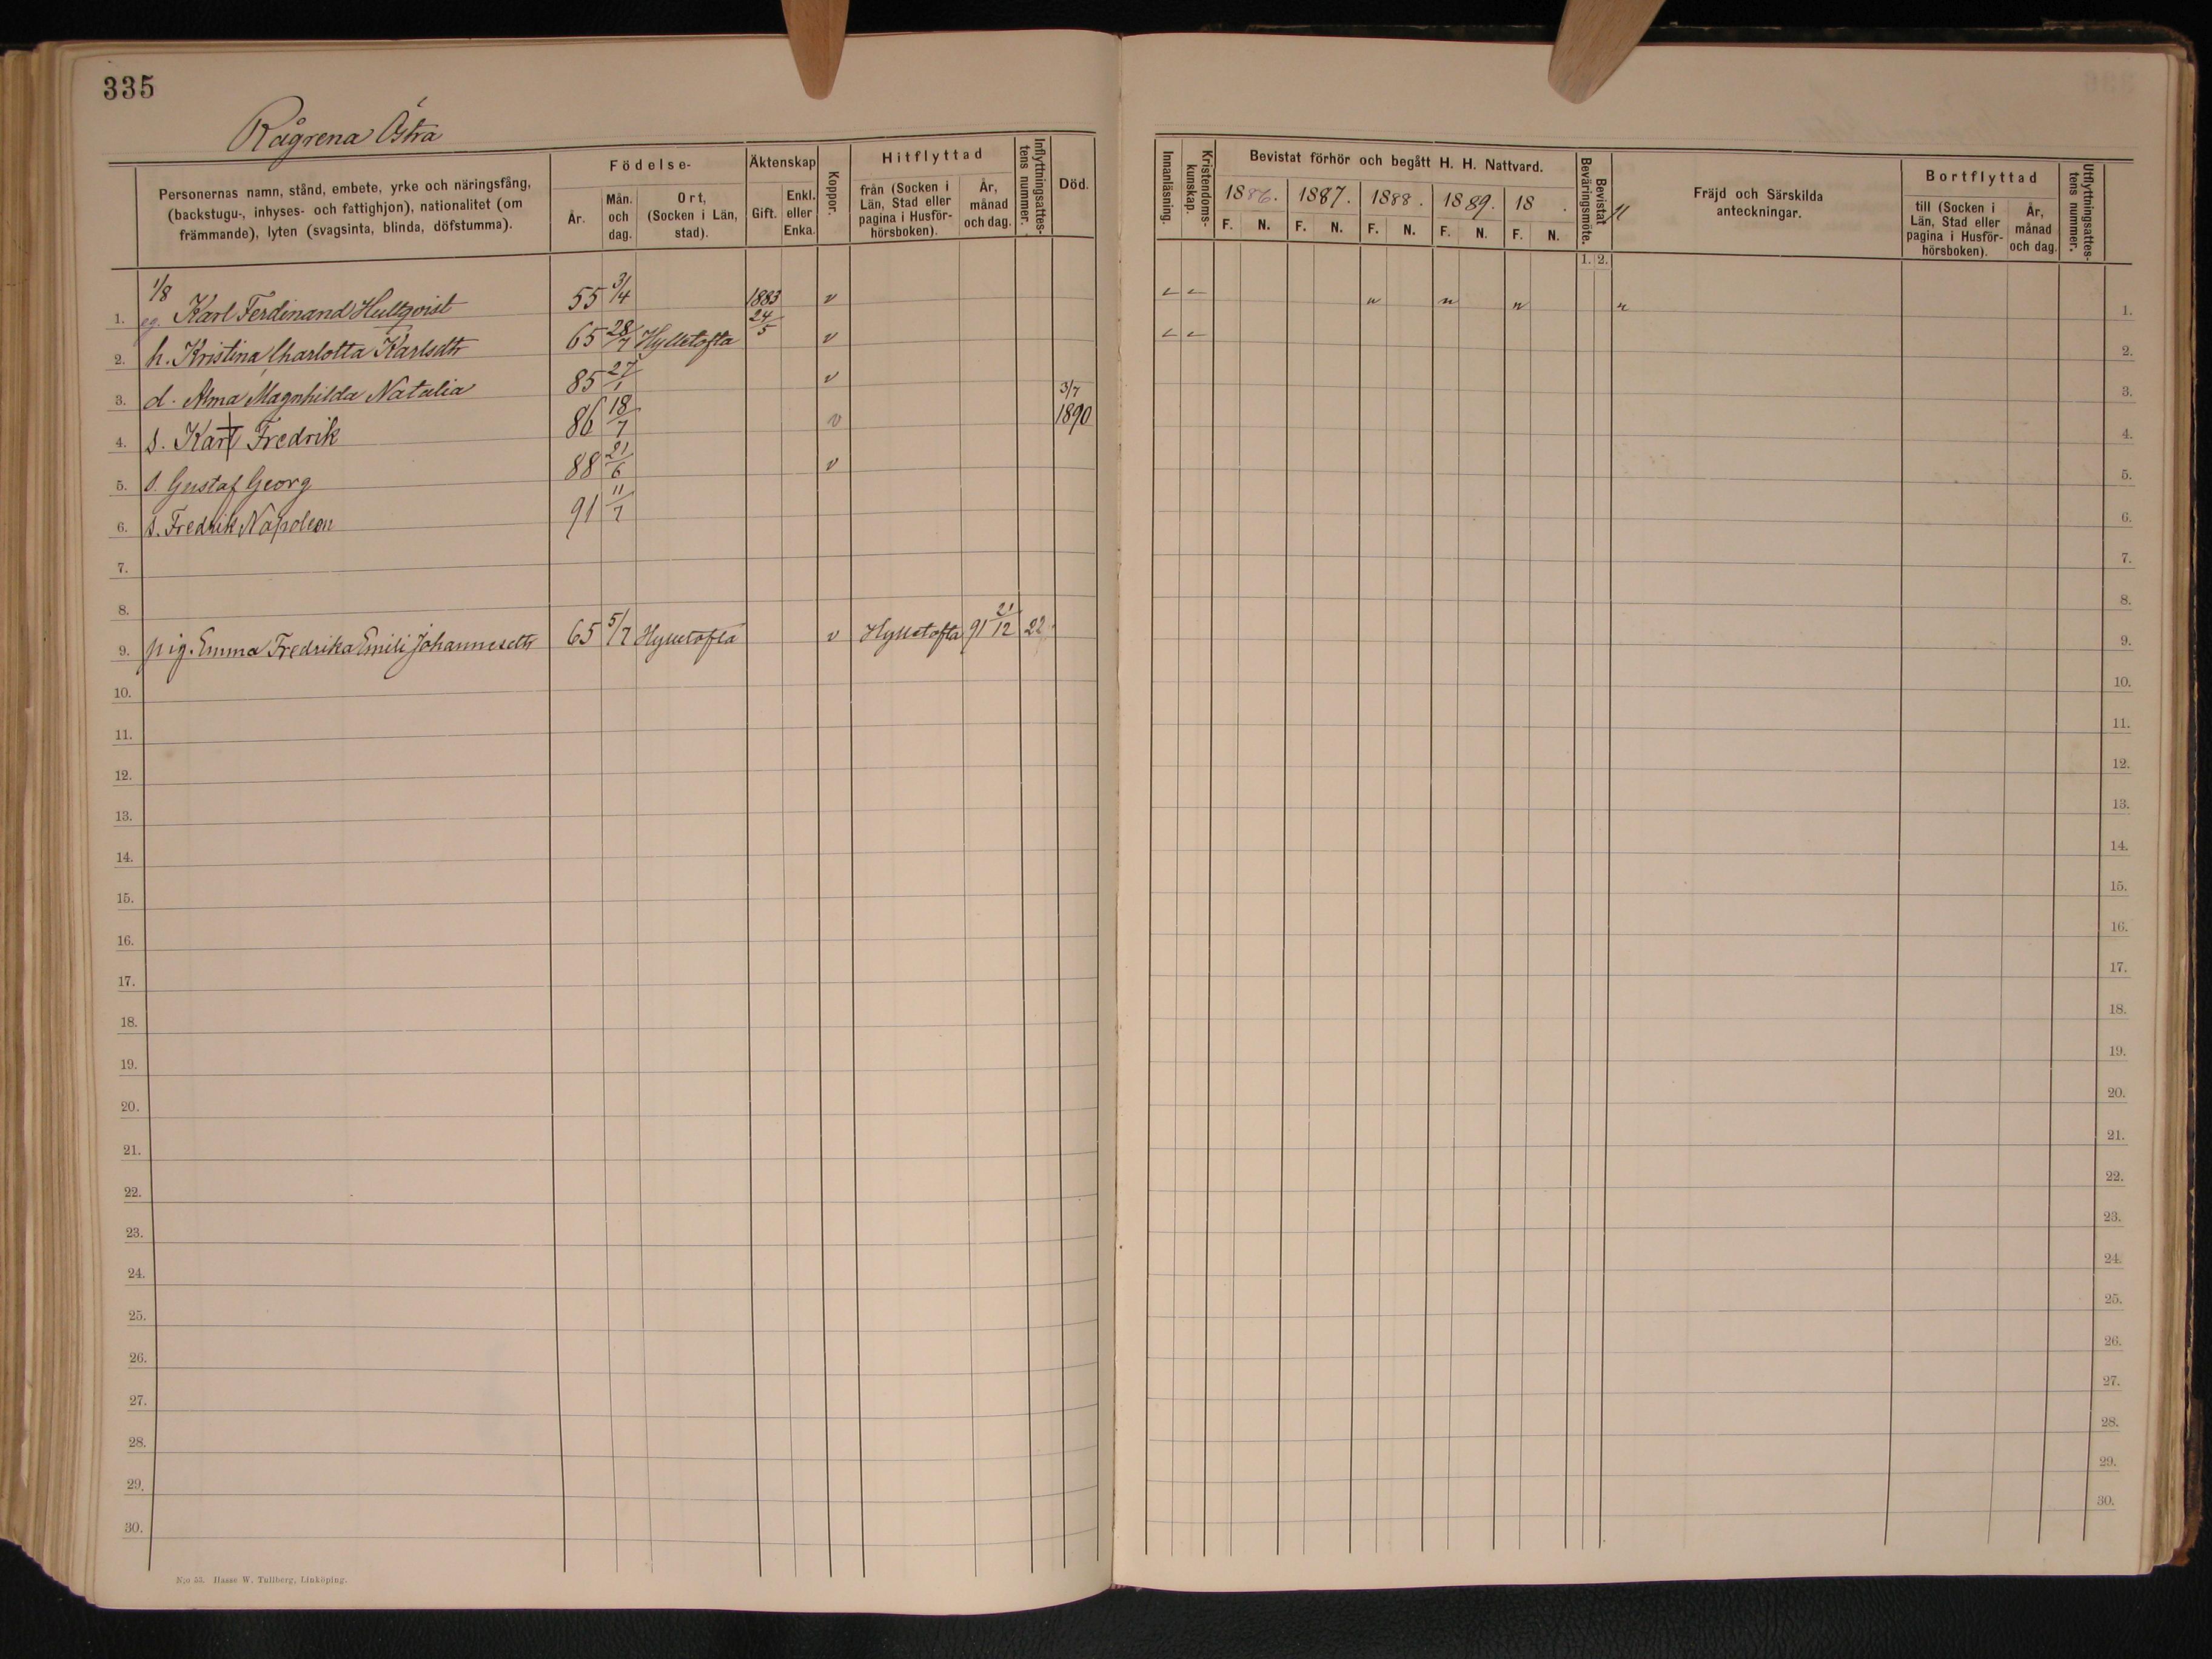 335
Rågrena Östra
Personernas namn, stånd, embete, yrke och näringsfång, (backstugu-, inhyses- och fattighjon), nationalitet (om främmande), lyten (svagsinta, blinda, döfstumma).
Födelse-
År.
Mån. och dag.
Ort, (Socken i Län, stad).
Äktenskap
Gift.
Enkl. eller Enka.
Koppor.
Hitflyttad
från (Socken i Län, Stad eller pagina i Husförhörsboken).
År, månad och dag.
Inflyttningsattestens nummer.
Död.
Innanläsning.
Kristendomskunskap.
Bevistat förhör och begått H. H. Nattvard.
1886. 1887. 1888. 1889. 18 .
F. N. F. N. F. N. F. N. F. N.
Bevistat Beväringsmöte.
1. 2.
Fräjd och Särskilda anteckningar.
Bortflyttad
till (Socken i Län, Stad eller pagina i Husförhörsboken).
År, månad och dag.
Utflyttningsattestens nummer.
1/8
1. eg. Karl Ferdinand Hultqvist 55 3/4 1883 24/5 v 1.
2. h. Kristina Charlotta Karlsdtr 65 28/7 Hylletofta v 2.
3. d. Alma Magnhilda Natalia 85 27/1 v 3.
4. s. Karl Fredrik 86 18/7 v 3/7 1890 4.
5. s. Gustaf Georg 88 21/6 v 5.
6. s. Fredrik Napoleon 91 11/7 6.
7. 7.
8. 8.
9. pig. Emma Fredrika Emili Johannesdtr 65 5/7 Hylletofta v Hylletofta 91 21/12 22 9.
10. 10.
11. 11.
12. 12.
13. 13.
14. 14.
15. 15.
16. 16.
17. 17.
18. 18.
19. 19.
20. 20.
21. 21.
22. 22.
23. 23.
24. 24.
25. 25.
26. 26.
27. 27.
28. 28.
29. 29.
30. 30.
N:o 53. Hasse W. Tullberg, Linköping.